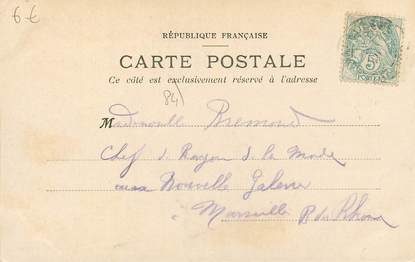 6 €
RÉPUBLIQUE FRANÇAISE
CARTE POSTALE
Ce côté est exclusivement réservé à l'adresse
84
Mademoiselle Bremond
Chef d. Rayon d. la Mode
aux Nouvelle Galerie
à Marseille B. du Rhone
5